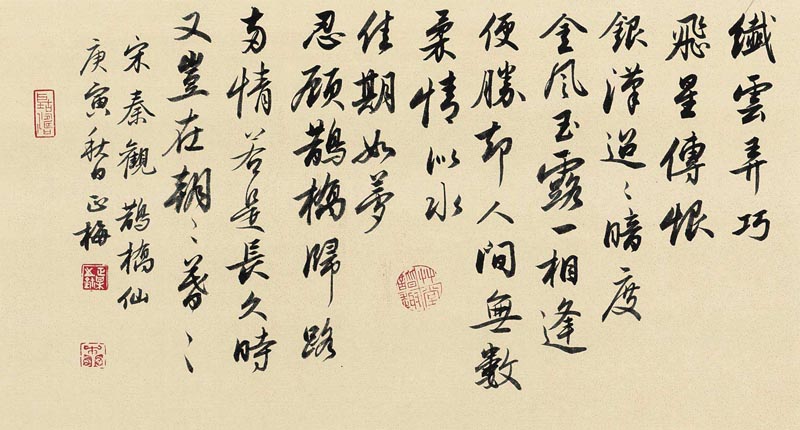 纖雲弄巧
飛星傳恨
銀漢迢〻暗度
金風玉露一相逢
便勝却人間無數
柔情似水
佳期如夢
忍顧鵲橋歸路
兩情若是長久時
又豈在朝〻暮〻
宋秦觀鵲橋仙
庚寅秋日正梅